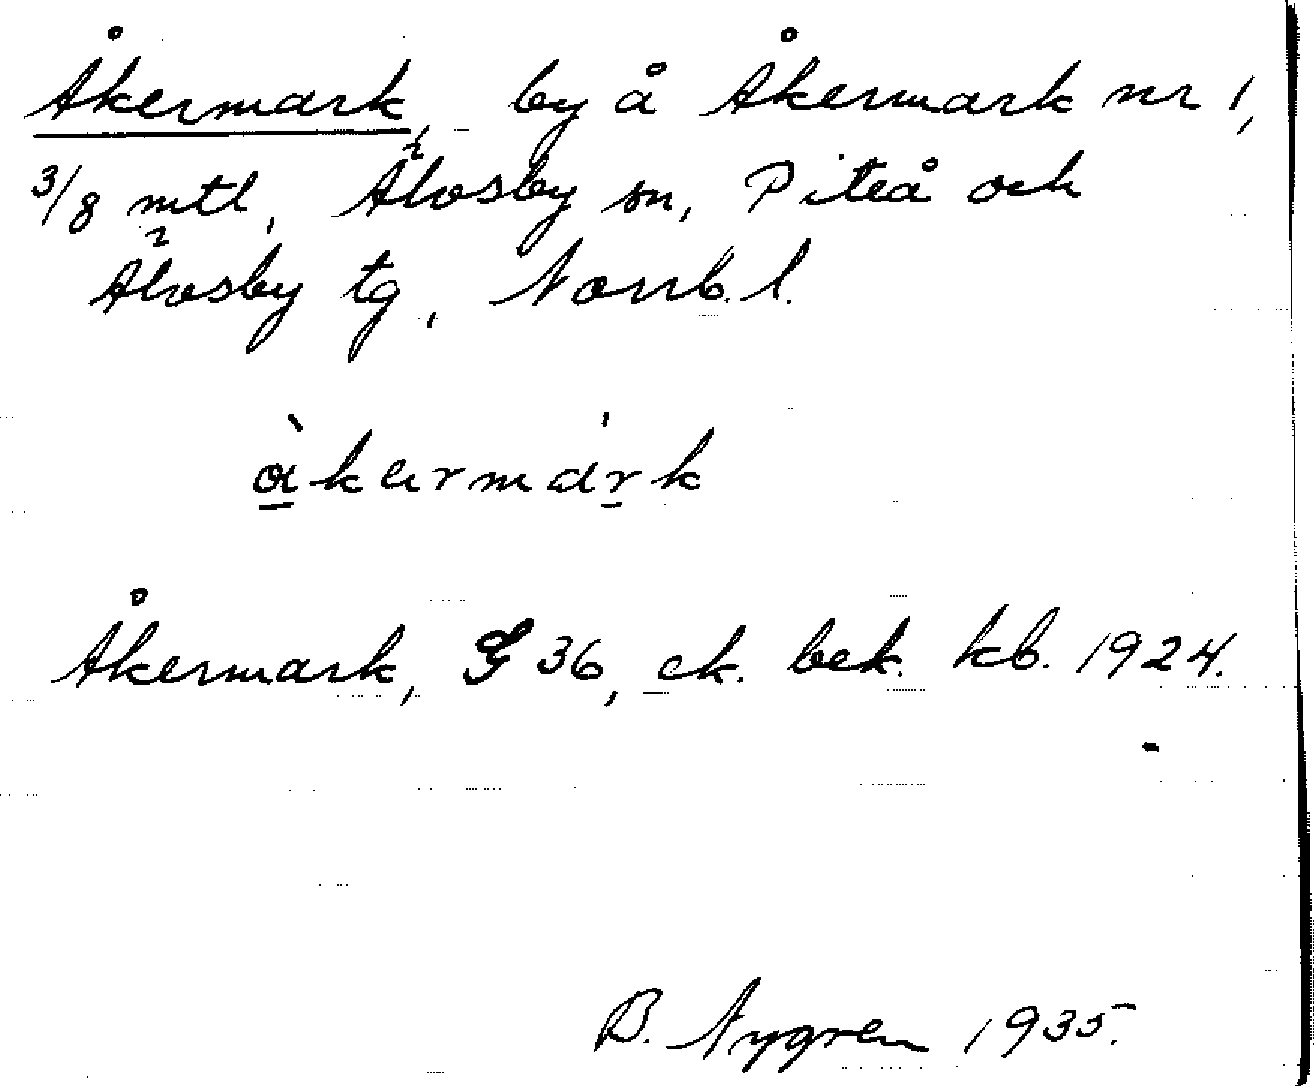 Åkermark, by å Åkermark nr 1,
3/8 mtl, Älvsby sn, Piteå och
Älvsby tg, Norrb. l.
àkermárk
Åkermark, G 36, ek. bek. kb. 1924.
B. Nygren 1935.